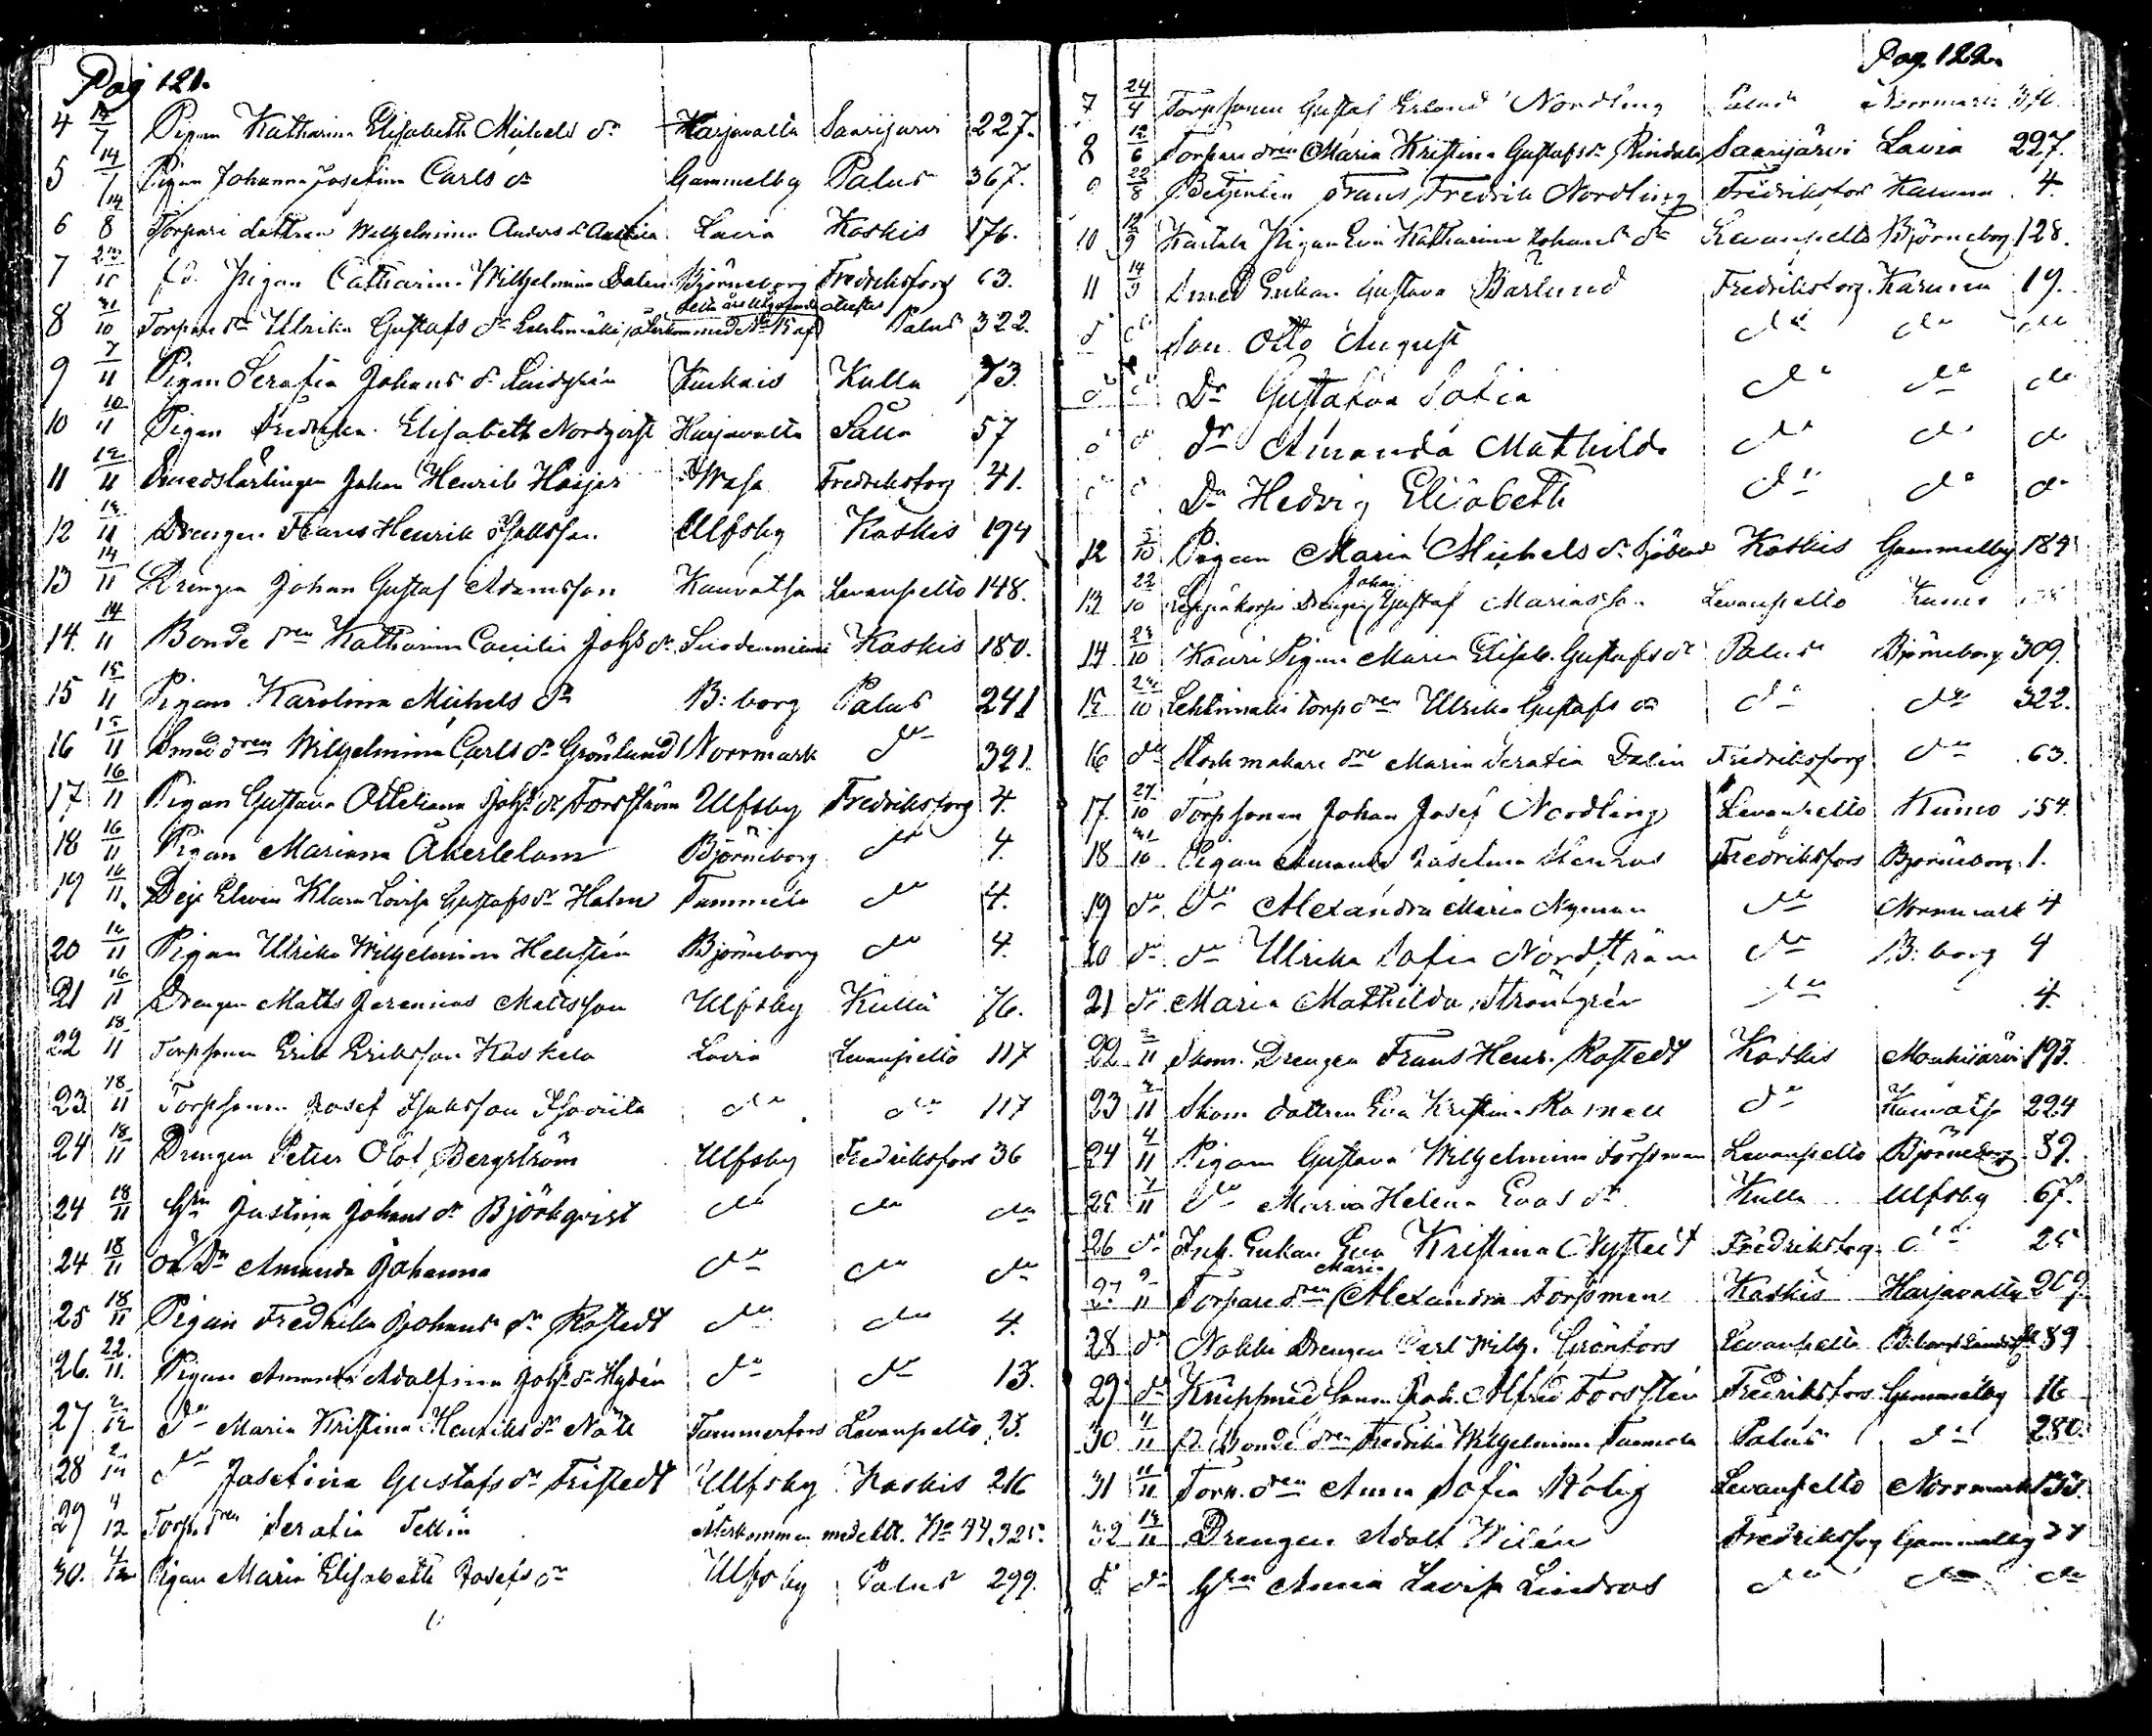 Pag 121.
4 14/7 Pigan Katharina Elisabeth Michels dr Harjavalta Saarijärvi 227.
5 14/7 Pigan Johanna Josefina Carls dr Gammelby Palus 367.
6 14/8 Torpare dottren Wilhelmina Anders dr Lavia Kaskis 176.
7 fd. Pigan Catharina Wilhelmina Dalin Björneborg Fredriksforg 63.
8 31/10 Torpare dr Ulrika Gustafs dr Lehtimäki, återkom med No 15 af detta års utgifna attester Palus 322.
9 7/11 Pigan Serafia Johans dr Kulla 73.
10 10/11 Pigan Fredrika Elisabeth Nordqvist Harjavalta 57
11 12/11 Smedslärlingen Johan Henrik Wasa Fredriksforg 41.
12 12/11 Drengen Frans Henrik Ulfsby Kaskis 194
13 14/11 Drengen Johan Gustaf Adamsson Kauvatsa Levanpelto 148.
14. 14/11 Bonde dren Katharina Caecilia Johs dr Suodenniemi Kaskis 180.
15 15/11 Pigan Karolina Michels dr B:borg Palus 241
16 15/11 Smed dren Wilhelmina Carls dr Grönlund Norrmark do 321.
17 16/11 Pigan Gustava Ottiliana Johs dr Forsström Ulfsby Fredriksforg 4.
18 16/11 Pigan Mariana Åkerblom Björneborg do 4.
19 16/11. Deje Elevin Klara Lovisa Gustafs dr Holm Tammela do 4.
20 16/11 Pigan Ulrika Wilhelmina Hellstén Björneborg do 4.
21 16/11 Drengen Matts Jeremias Mattsson Ulfsby Kulla 76.
22 18/11 Torpsonen Erik Eriksson Koskela Lavia Levanpelto 117
23 18/11 Torpsonen Josef do do 117
24 18/11 Drengen Petter Olof Bergström Ulfsby Fredriksfors 36
24 18/11 Hn Justina Johans dr Björkqvist do do do
24 18/11 Dr Amanda Johanna do do do
25 18/11 Pigan Fredrika Johans dr Rostedt do do 4.
26. 22/11. Pigan Amanda Adolfina Johs dr Hydén do do 13.
27 2/12 do Maria Kristina Henriks dr Tammerfors Levanpelto 93.
28 2/12 do Josefina Gustafs dr Fristedt Ulfsby Kaskis 216
29 4/12 Torp. dren Serafia Tellin Återkommen med att. No 44, 325.
30. 4/12 Pigan Maria Elisabeth Josefs dr Ulfsby Palus 299.
Pag. 122.
7 24/4 Torpsonen Gustaf Erland Nordling Palus Norrmark
8 12/6 Torpare dren Maria Kristina Gustafs dr Rindala Saarijärvi Lavia 227.
9 22/8 Betjenten Frans Fredrik Nordling Fredriksfors Karuna 4.
10 12/9 Pigan Eva Katharina Johans dr Levanpelto Björneborg 128.
11 14/9 Smed Enkan Gustava Barlund Fredriksforg. Karuna 19.
do do Son Otto August do do do
do do Dr Gustafva Sofia do do do
do do dr Amanda Mathilda do do do
do do Dr Hedvig Elisabeth do do do
12 5/10 Pigan Maria Michels dr Kaskis Gammelby 184
13 22/10 Leppäkorpi Drengen Johan Gustaf Mariasson Levanpelto Kumo
14 23/10 Kauri Pigan Maria Elisab. Gustafs dr Palus Björneborg 309.
15 24/10 Lehtimäki torp dren Ulrika Gustafs dr do do 322.
16 do makare dr Maria Serafia Dalin Fredriksforg do 63.
17. 27/10 Torpsonen Johan Josef Nordling Levanpelto Kumo 154.
18 31/10 Pigan Amanda Josefina Fredriksfors Björneborg 1.
19 do do Alexandra Maria Nyman do Norrmark 4
20 do do Ulrika Sofia Nordström do B:borg 4
21 do Maria Mathilda Strömgrén do 4.
22 2/11 Skom. Drengen Frans Henr. Rostedt Kaskis Mouhijärvi 193.
23 2/11 Skom dottren Eva Kristina do 224
24 4/11 Pigan Gustava Wilhelmina Forssman Levanpelto Björneborg 89.
25 7/11 do Maria Helena Evas dr Kulla Ulfsby 67.
26 do Inh. Enkan Eva Kristina Nystedt Fredriksforg do 25
27 9/11 Torpare dren Maria Alexandra Forssman Kaskis Harjavalta 209.
28 do Nokki Drengen Carl Wilh. Grönfors Levanpelto 89
29 do Knipsmed Sonen Joh. Alfred Forstén Fredriksfors Gammelby 16
30. 11/11 fd. Bonde dren Fredrika Wilhelmina Palus do 280.
31 11/11 Torp. dren Anna Sofia Levanpelto Norrmark
32 14/11 Drengen Adolf Widén Fredriksforg Gammelby
do do Hn Anna Lovisa Lindroos do do do